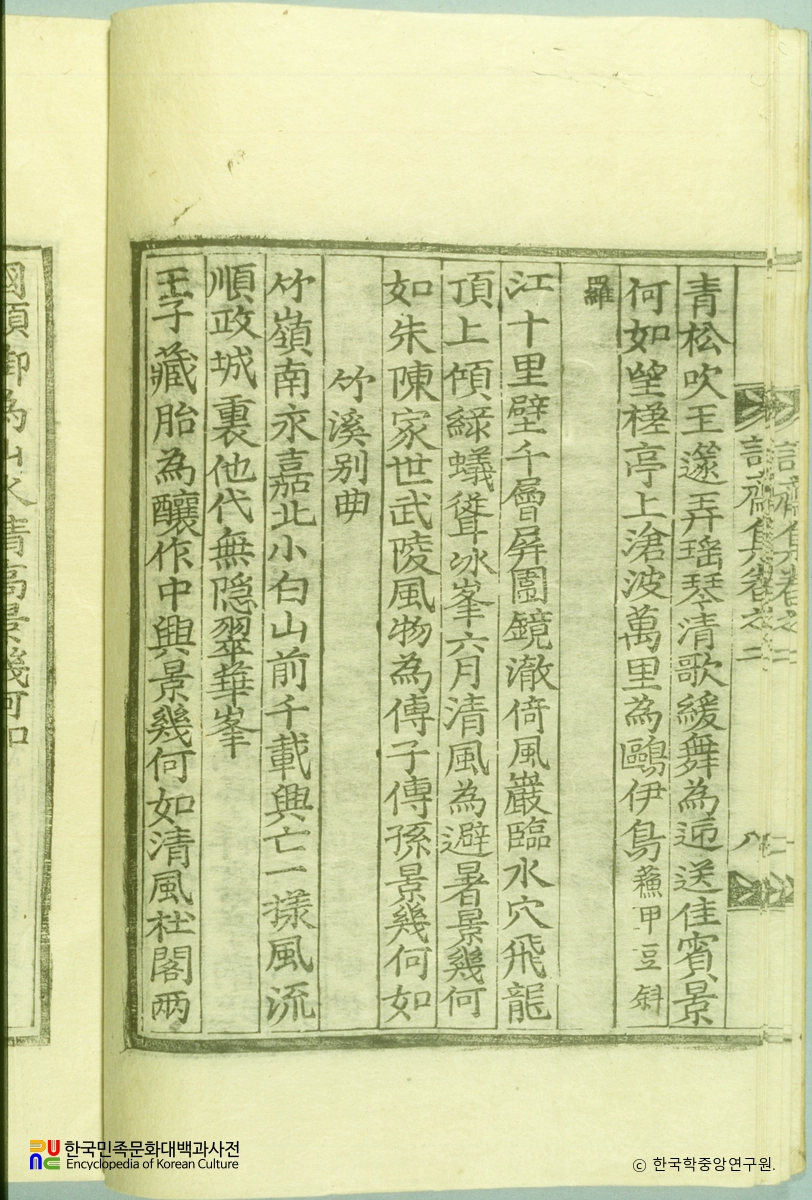 青松吹玉篴弄瑤琴清歌緩舞為迎送佳賓景
何如望槎亭上滄波萬里為鷗伊鳥藼甲豆斜
羅
江十里壁千層屏圍鏡澈倚風巖臨水穴飛龍
頂上傾綠蟻聳氷峯六月清風為避暑景幾何
如朱陳家世武陵風物為傳子傳孫景幾何如
竹溪別曲
竹嶺南永嘉北小白山前千載興亡一㨾風流
順政城裏他代無隐翠華峯
王子藏胎為釀作中興景幾何如清風杜閣兩
謹齋集卷之二
國頭御為山水清高景幾何如
한국민족문화대백과사전
Encyclopedia of Korean Culture
ⓒ 한국학중앙연구원.